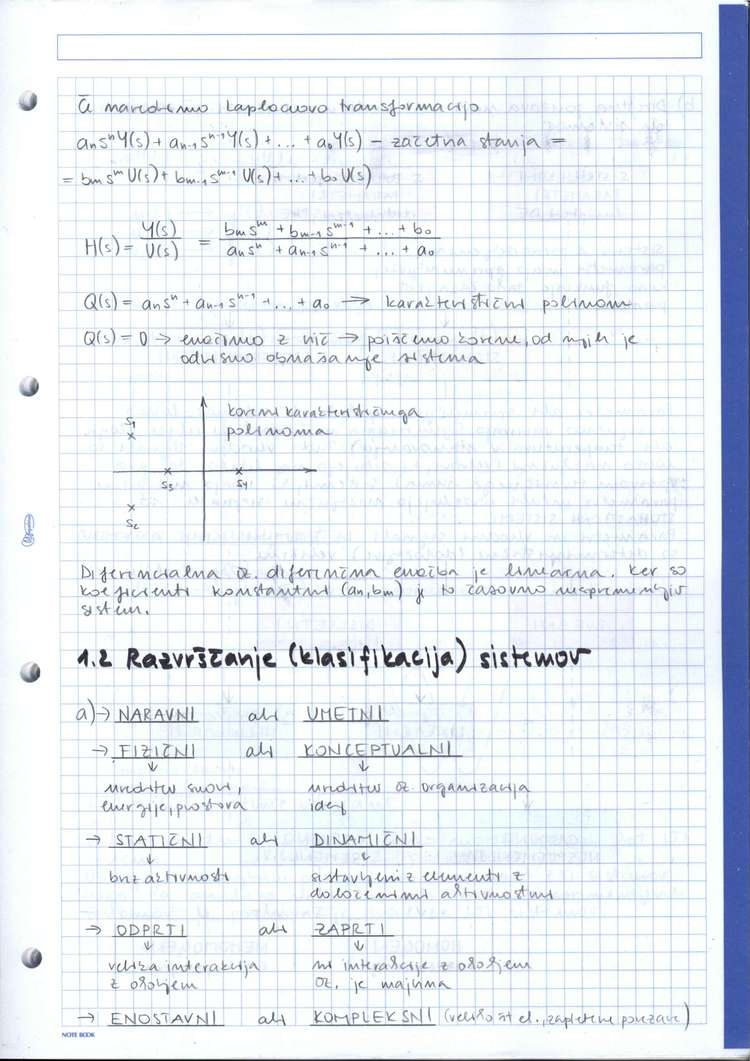 Če naredimo Laplaceovo transformacijo
aₙsⁿY(s) + aₙ₋₁sⁿ⁻¹Y(s) + ... + a₀Y(s) – začetna stanja =
= bₘsᵐU(s) + bₘ₋₁sᵐ⁻¹U(s) + ... + b₀U(s)
H(s) = Y(s)/U(s) = (bₘsᵐ + bₘ₋₁sᵐ⁻¹ + ... + b₀)/(aₙsⁿ + aₙ₋₁sⁿ⁻¹ + ... + a₀)
Q(s) = aₙsⁿ + aₙ₋₁sⁿ⁻¹ + ... + a₀ → karakteristični polinom
Q(s) = 0 → enačimo z nič → poiščemo korene, od njih je
odvisno obnašanje sistema
koreni karakterističnega
polinoma
s₁
s₃ s₄
s₂
Diferencialna oz. diferenčna enačba je linearna. Ker so
koeficienti konstantni (aₙ, bₘ) je to časovno nespremenljiv
sistem.
1.2 Razvrščanje (klasifikacija) sistemov
a) → NARAVNI ali UMETNI
→ FIZIČNI ali KONCEPTUALNI
↓ ↓
ureditev snovi, ureditev oz. organizacija
energije, prostora idej
→ STATIČNI ali DINAMIČNI
↓ ↓
brez aktivnosti sestavljeni z elementi z
določenimi aktivnostmi
→ ODPRTI ali ZAPRTI
↓ ↓
velika interakcija ni interakcije z okoljem
z okoljem oz. je majhna
→ ENOSTAVNI ali KOMPLEKSNI (velikost el., zapletene povezave)
NOTE BOOK